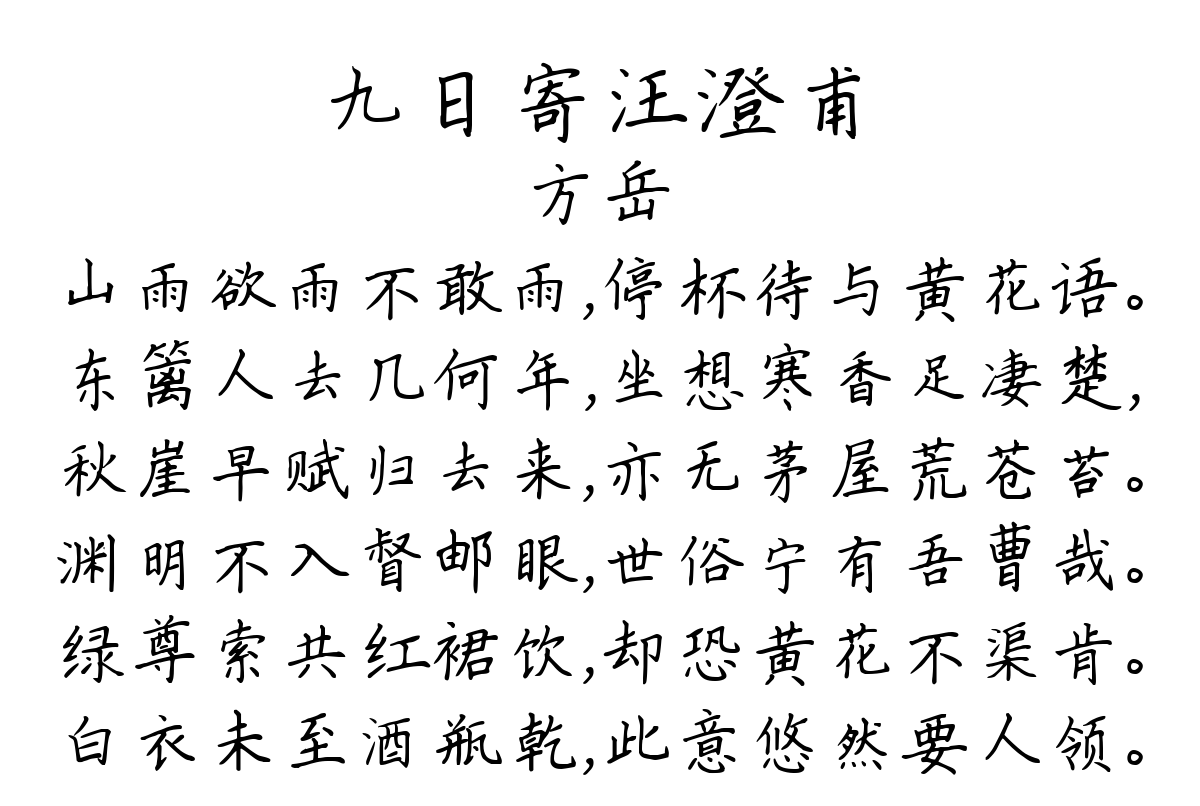 九日寄汪澄甫
方岳
山雨欲雨不敢雨,停杯待与黄花语。
东篱人去几何年,坐想寒香足凄楚,
秋崖早赋归去来,亦无茅屋荒苍苔。
渊明不入督邮眼,世俗宁有吾曹哉。
绿尊索共红裙饮,却恐黄花不渠肯。
白衣未至酒瓶乾,此意悠然要人领。